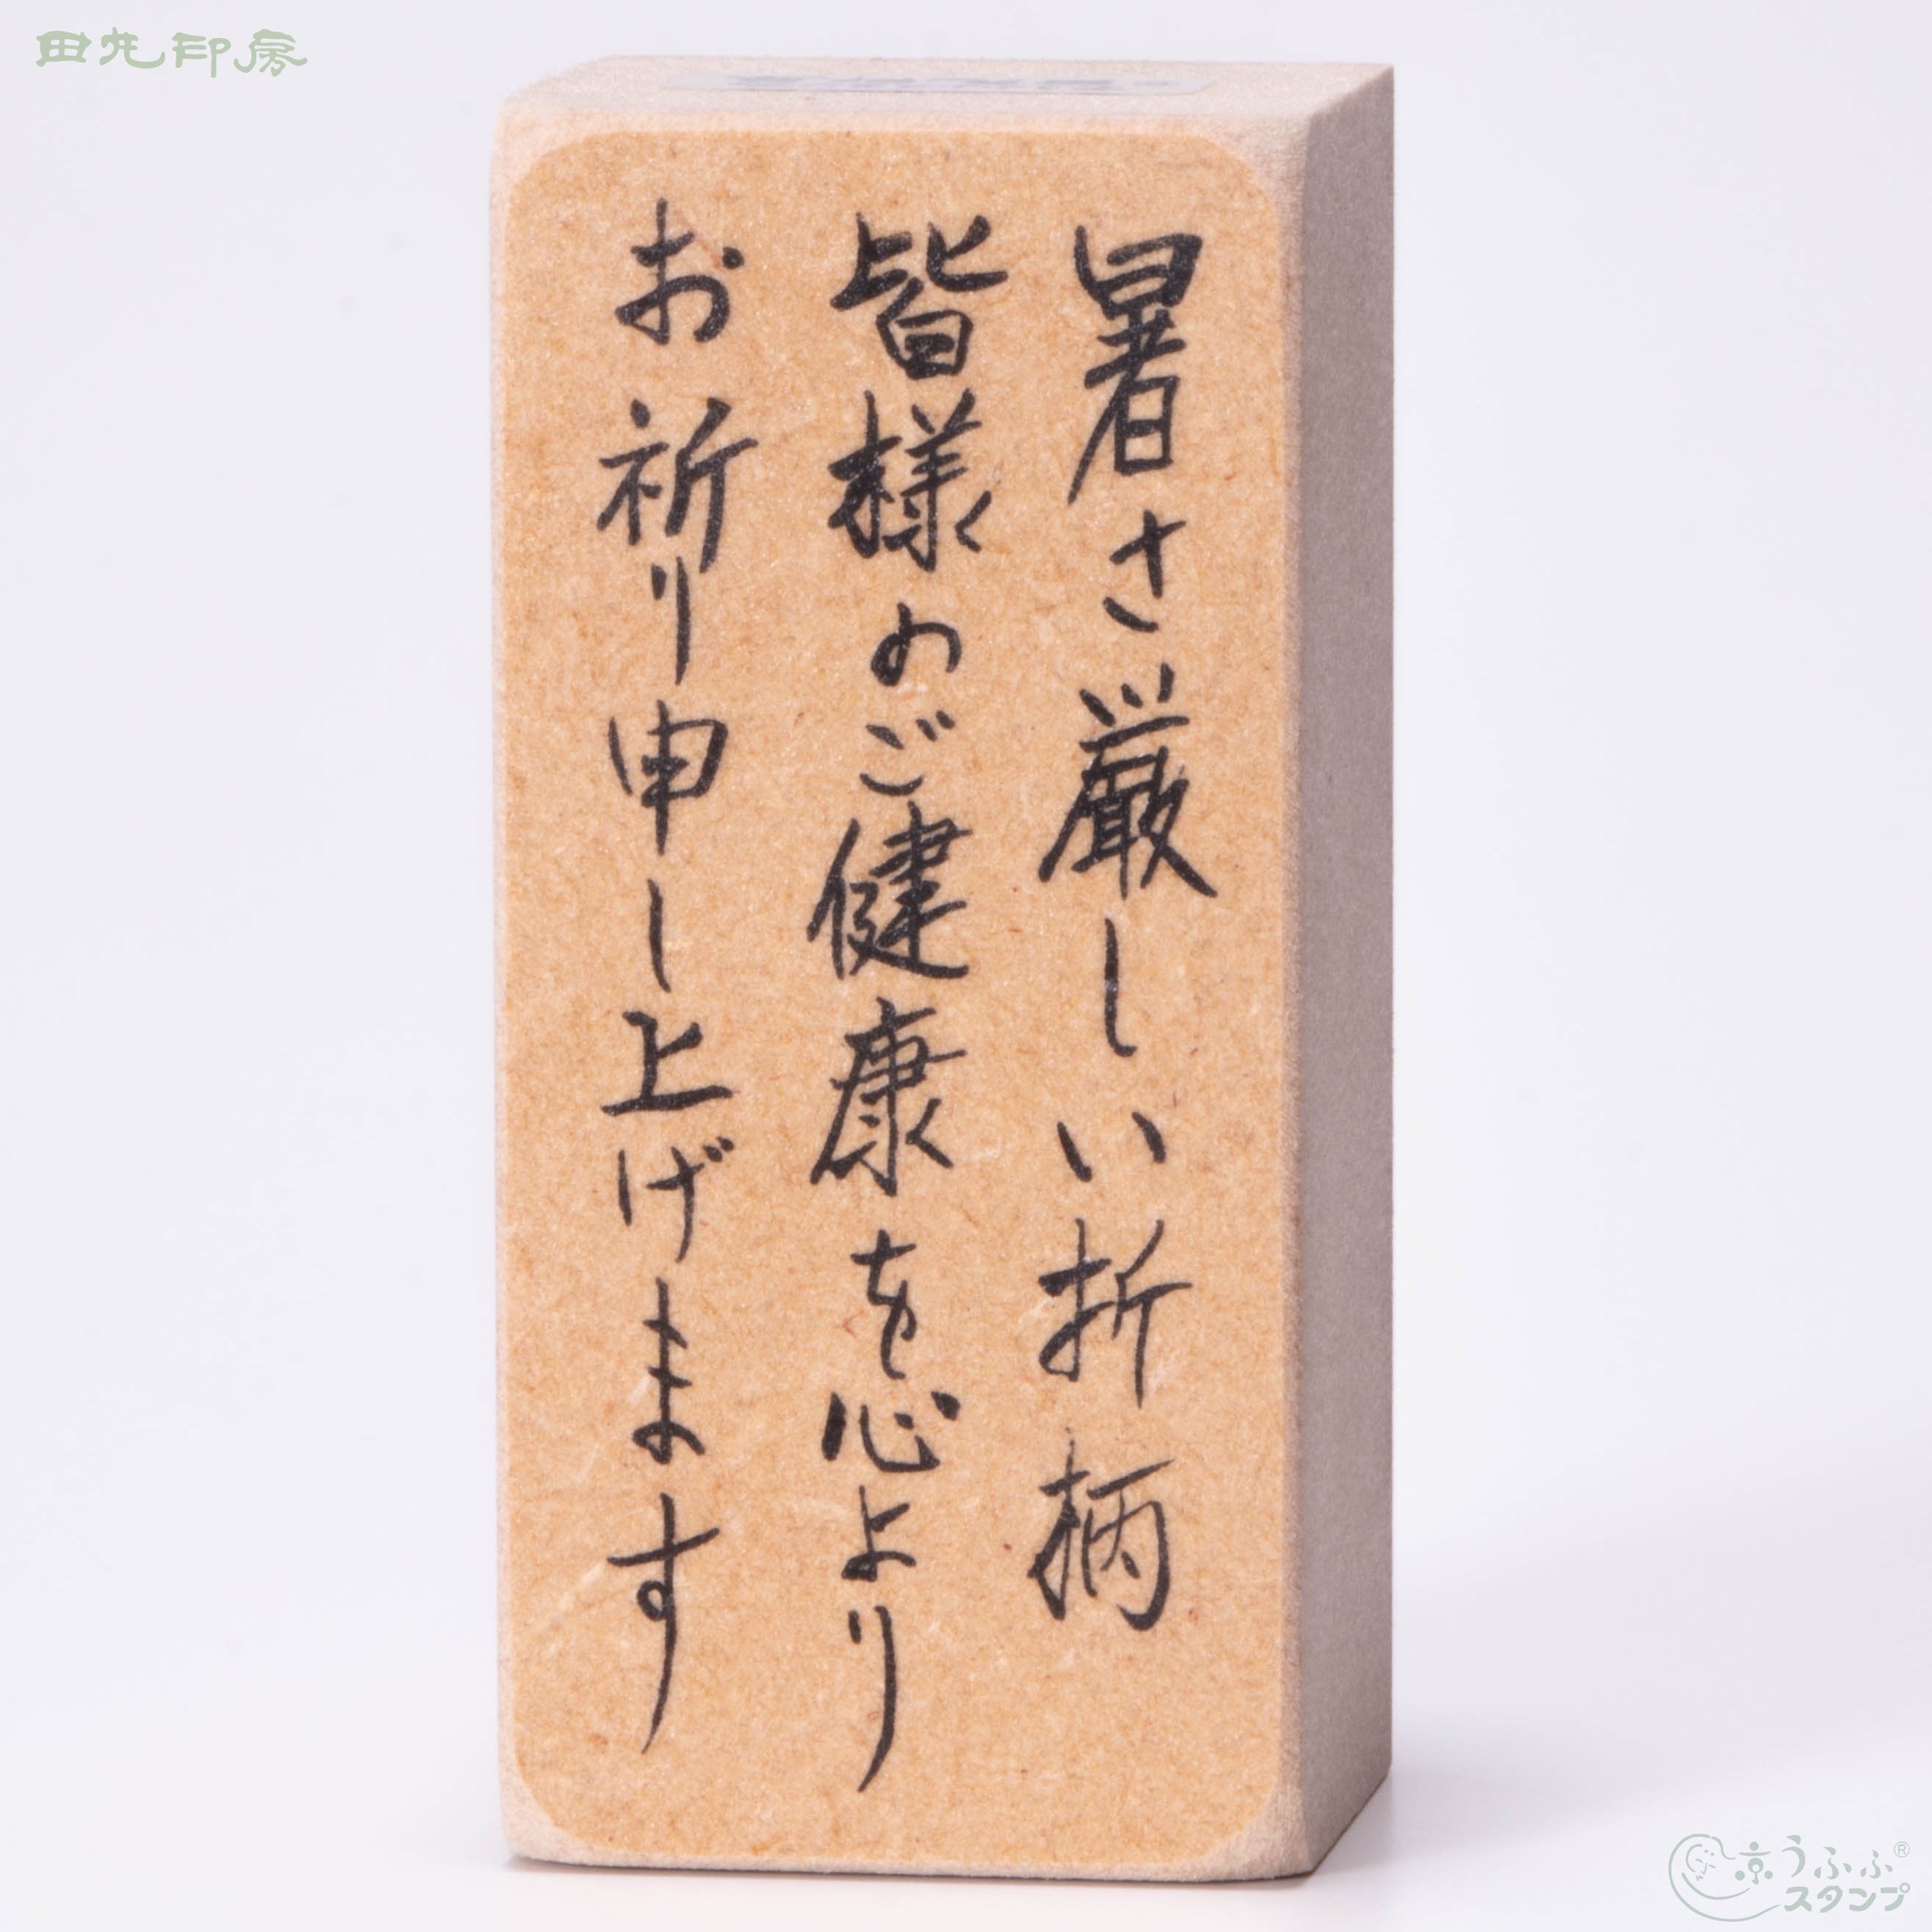 田丸印房
暑さ厳しい折柄
皆様のご健康を心より
お祈り申し上げます
京うふふ®
スタンプ